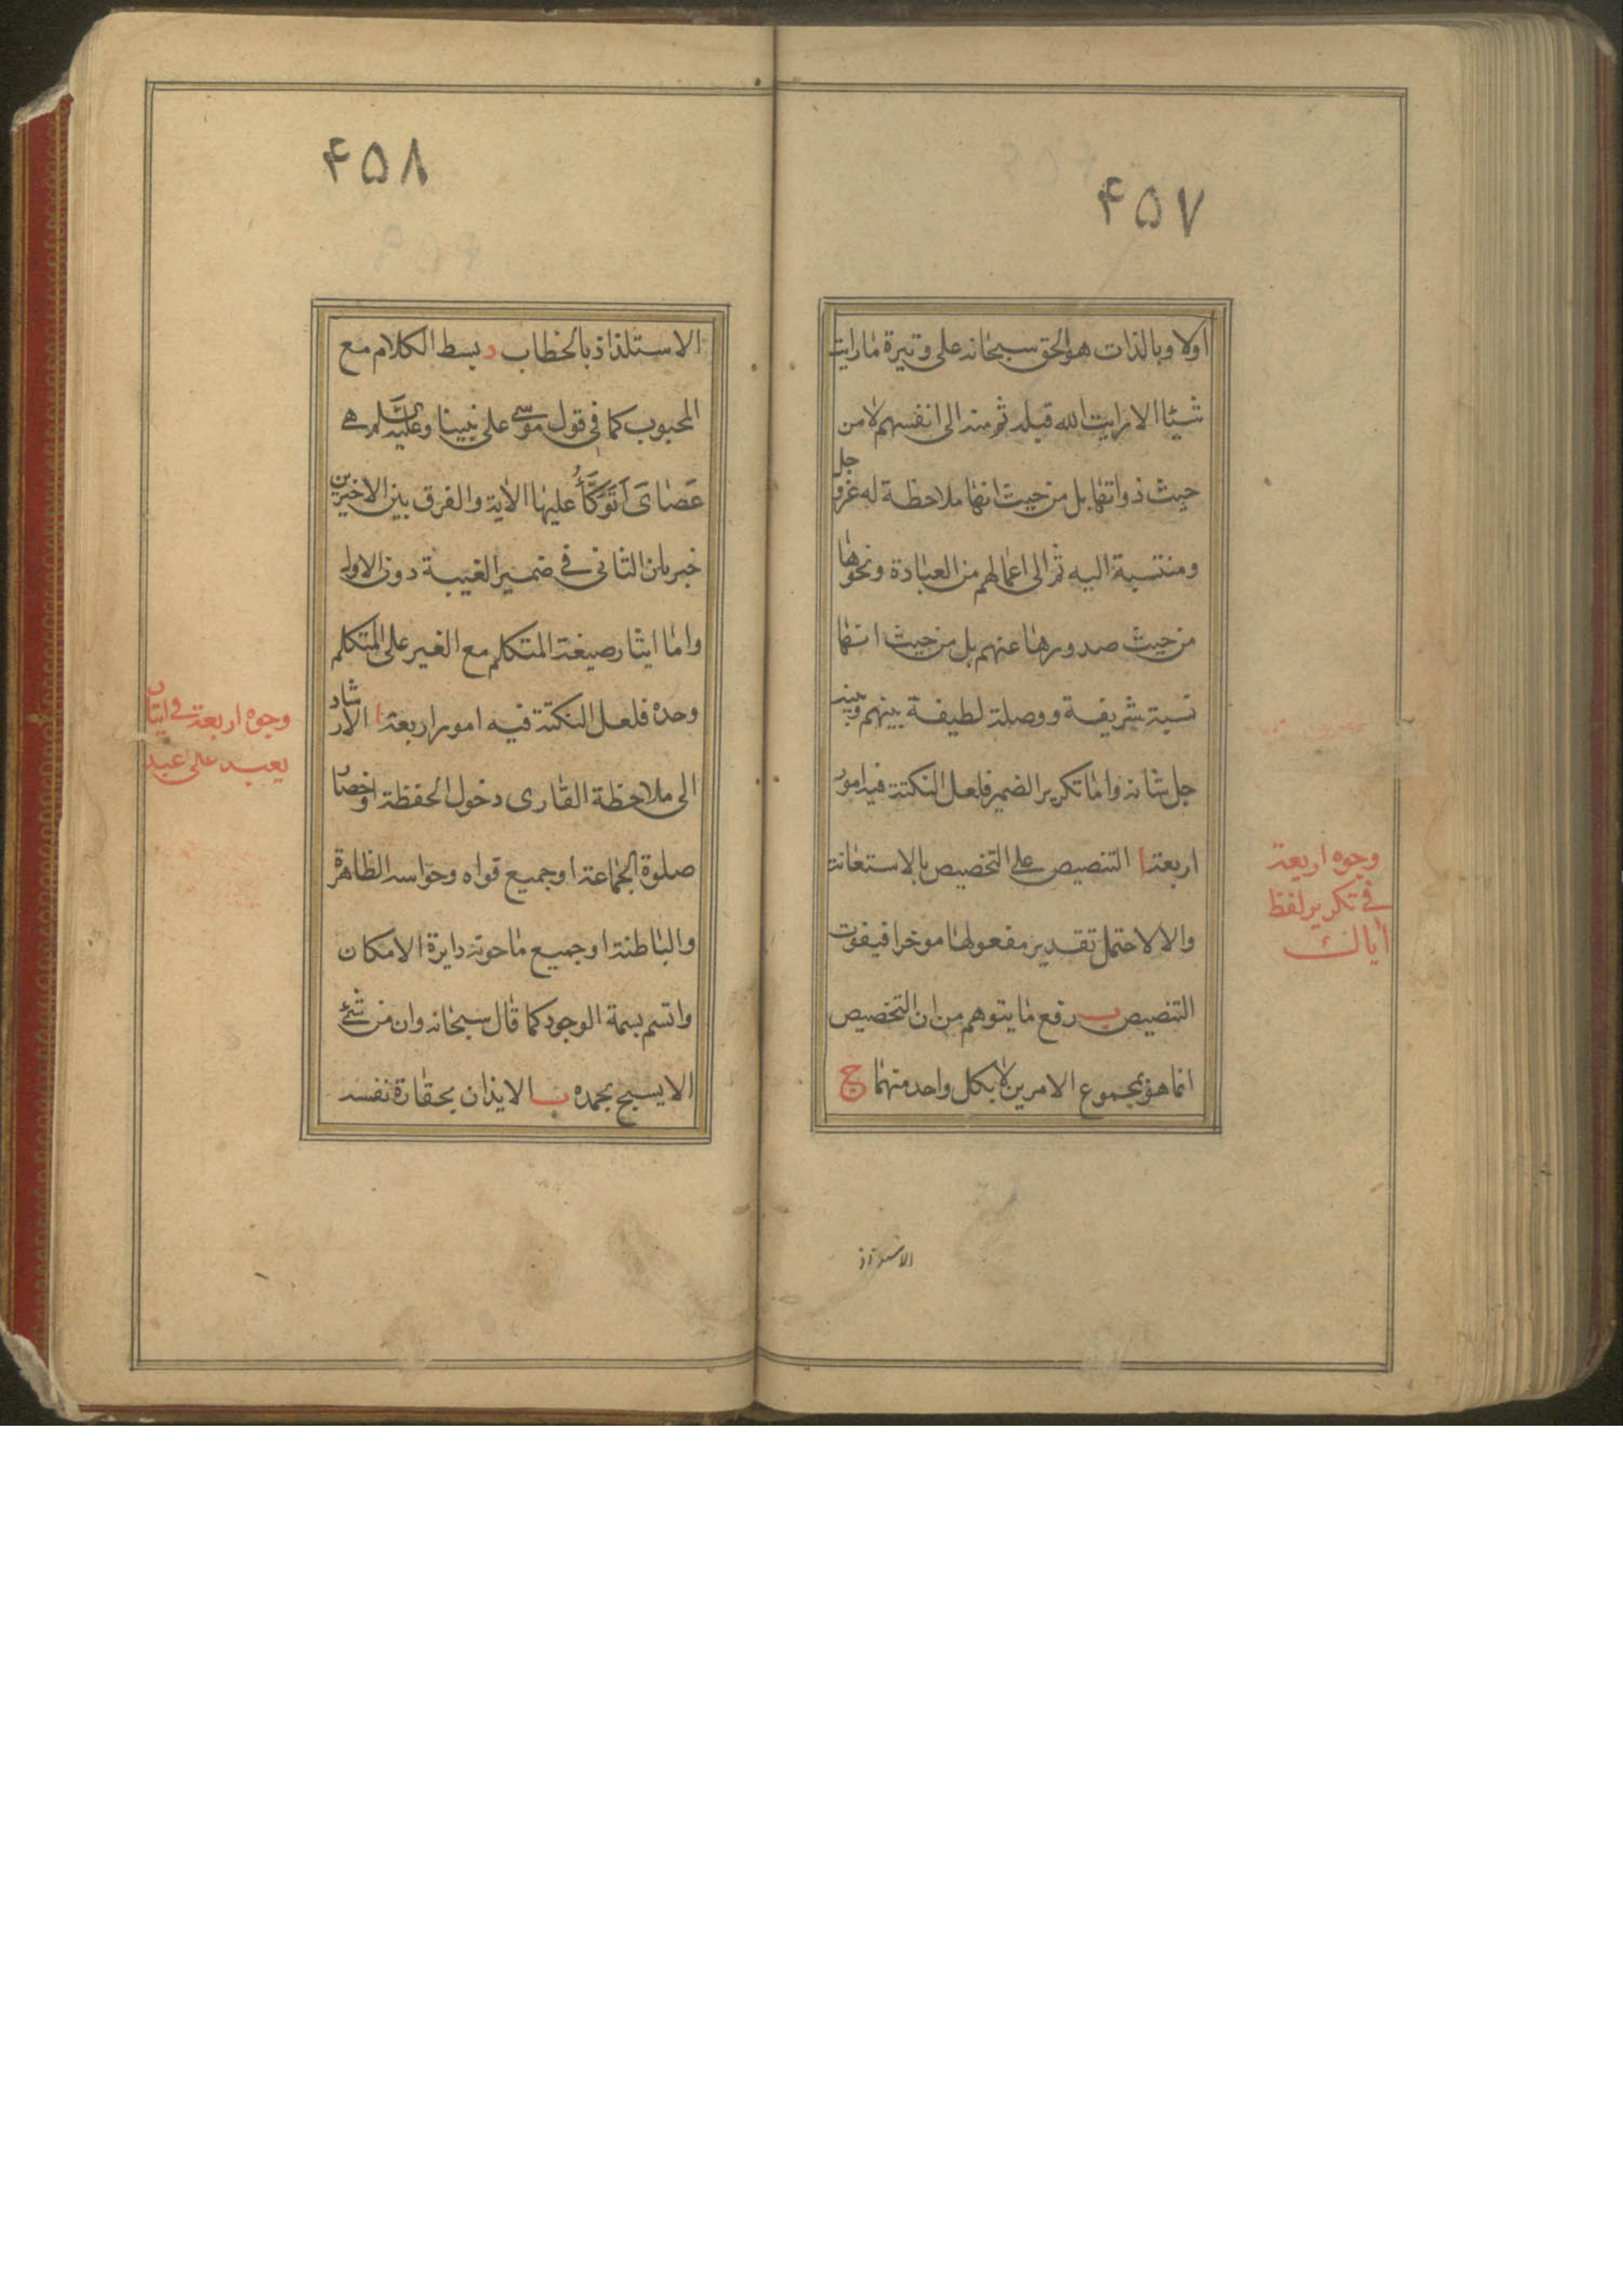 ۴۵۷
اولا وبالذات هو الحق سبحانه على وتيرة ما رايت
شيئا الا رايت الله قبله ثم منه الى انفسهم لا من
حيث ذواتها بل من حيث انها ملاحظة له عز و جل
ومنتسبة اليه ثم الى اعمالهم من العبادة ونحوها
من حيث صدورها عنهم بل من حيث انها
نسبة شريفة ووصلة لطيفة بينهم وبينه
جل شانه واما تكرير الضمير فلعل النكتة فيه امور
اربعة ا التنصيص على التخصيص بالاستعانة
والا لاحتمل تقدير مفعولها موخرا فيفوت
التنصيص ب رفع ما يتوهم من ان التخصيص
انما هو بمجموع الامرين لا بكل واحد منهما ج
وجوه اربعة
في تكرير لفظ
اياك
۴۵۸
الاستلذاذ بالخطاب د بسط الكلام مع
المحبوب كما في قول موسى على نبينا وعليه السلم هي
عَصَاىَ اَتَوَكَّأُ عليها الاية والفرق بين الاخيرين
خبريان الثاني في ضمير الغيبة دون الاول
واما ايثار صيغة المتكلم مع الغير على المتكلم
وحده فلعل النكتة فيه امور اربعة ا الارشاد
الى ملاحظة القارى دخول الحفظة او حضار
صلوة الجماعة او جميع قواه وحواسه الظاهرة
والباطنة او جميع ما حوته دايرة الامكان
واتسم بسمة الوجود كما قال سبحانه وان من شئ
الا يسبح بحمده ب الايذان بحقارة نفسه
وجوه اربعة في ايثار
يعبد على عبد